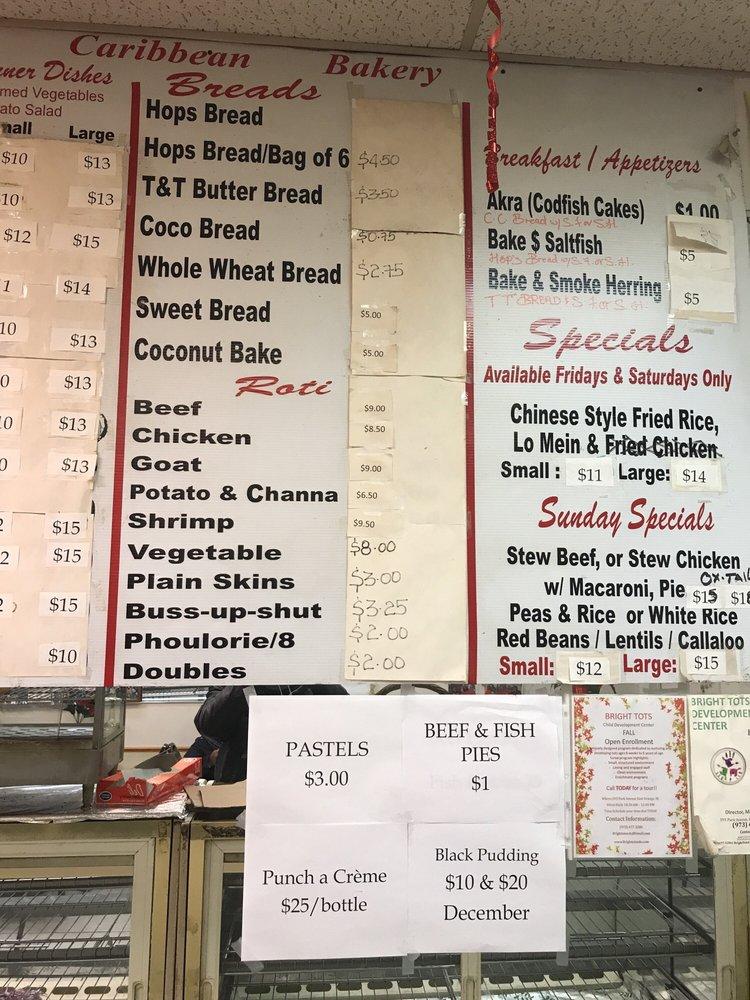 Caribbean Bakery
ner Dishes
med Vegetables
ato Salad
mall Large
$10 $13
10 $13
$12 $15
1 $14
10 $13
0 $13
0 $13
0 $13
2 $15
2 $15
2 $15
$10
Breads
Hops Bread
Hops Bread/Bag of 6 $4.50
T&T Butter Bread $3.50
Coco Bread $0.75
Whole Wheat Bread $2.75
Sweet Bread $5.00
Coconut Bake $5.00
Roti
Beef $9.00
Chicken $8.50
Goat $9.00
Potato & Channa $6.50
Shrimp $9.50
Vegetable $8.00
Plain Skins $3.00
Buss-up-shut $3.25
Phoulorie/8 $2.00
Doubles $2.00
Breakfast / Appetizers
Akra (Codfish Cakes) $1.00
C.C. Bread w/ S.F or S.H.
Bake $ Saltfish $5
Hops Bread w/ S.F. or S.H.
Bake & Smoke Herring $5
TT BREAD & S.F or S.H.
Specials
Available Fridays & Saturdays Only
Chinese Style Fried Rice,
Lo Mein & Fried Chicken
Small : $11 Large: $14
Sunday Specials
Stew Beef, or Stew Chicken
OX-TAIL
w/ Macaroni, Pie $15 $18
Peas & Rice or White Rice
Red Beans / Lentils / Callaloo
Small: $12 Large: $15
PASTELS
$3.00
BEEF & FISH
PIES
$1
Punch a Crème
$25/bottle
Black Pudding
$10 & $20
December
BRIGHT TOTS
Child Development Center
FALL
Open Enrollment
Call TODAY for a tour!!
Contact Information:
BRIGHT TOTS
DEVELOPME
CENTER
Director, M
(973)